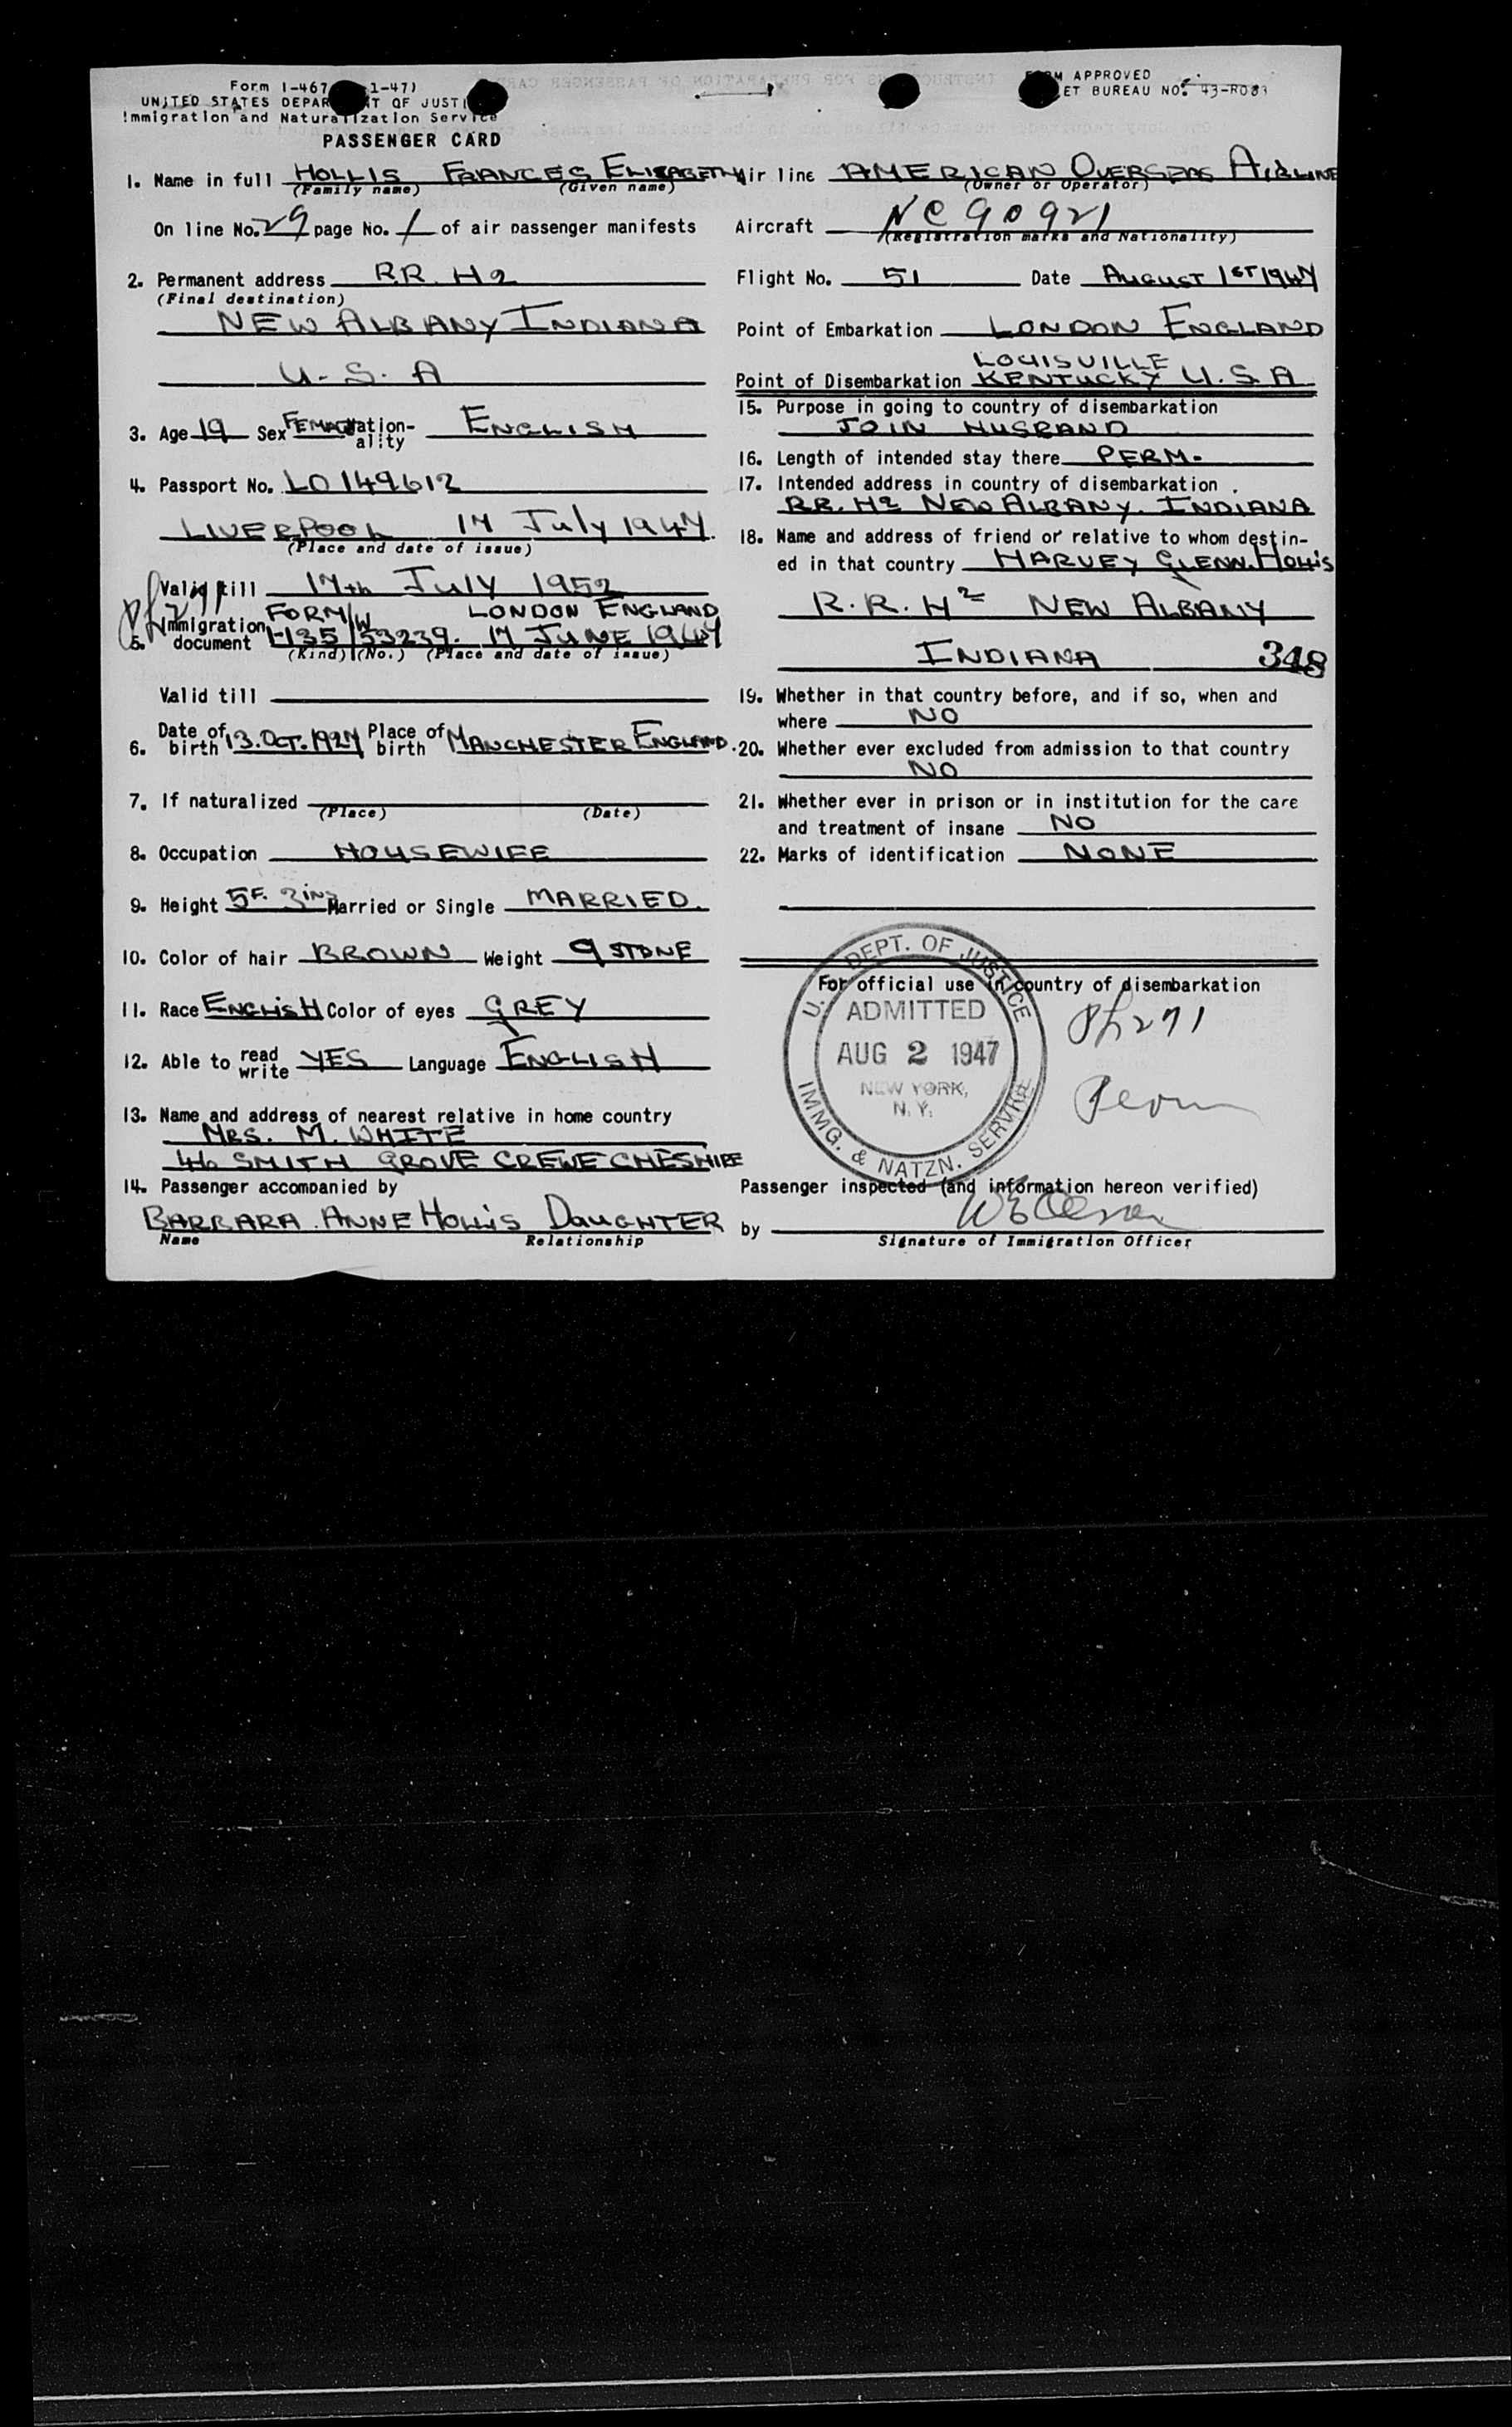 Form I-467 1-47)
UNITED STATES DEPAR T OF JUSTI
Immigration and Naturalization Service
PASSENGER CARD
FORM APPROVED
ET BUREAU NO. 43-R083
1. Name in full HOLLIS FRANCES ELIZABETH
(Family name) (Given name)
On line No. 29 page No. 1 of air passenger manifests
2. Permanent address R.R. H2
(Final destination)
NEW ALBANY INDIANA
U.S.A
3. Age 19 Sex FEMALE Nation-ality ENGLISH
4. Passport No. LO149612
LIVERPOOL 17 July 1947.
(Place and date of issue)
Valid till 17th July 1952
5. Immigration document FORM I-135 W 53239. LONDON ENGLAND 17 JUNE 1947
(Kind) (No.) (Place and date of issue)
Valid till
6. Date of birth 13.OCT.1927 Place of birth MANCHESTER ENGLAND.
7. If naturalized
(Place) (Date)
8. Occupation HOUSEWIFE
9. Height 5F. 3INS Married or Single MARRIED.
10. Color of hair BROWN Weight 9 STONE
11. Race ENGLISH Color of eyes GREY
12. Able to read write YES Language ENGLISH
13. Name and address of nearest relative in home country
MRS. M. WHITE
46 SMITH GROVE CREWE CHESHIRE
14. Passenger accompanied by
BARBARA. ANNE HOLLIS DAUGHTER
Name Relationship
Air line AMERICAN OVERSEAS AIRLINE
(Owner or Operator)
Aircraft NC90921
(Registration marks and Nationality)
Flight No. 51 Date AUGUST 1ST 1947
Point of Embarkation LONDON ENGLAND
LOUISVILLE
Point of Disembarkation KENTUCKY U.S.A
15. Purpose in going to country of disembarkation
JOIN HUSBAND
16. Length of intended stay there PERM.
17. Intended address in country of disembarkation
RR. H2 NEW ALBANY. INDIANA
18. Name and address of friend or relative to whom destin-
ed in that country HARVEY GLENN. HOLLIS
R.R. H2 NEW ALBANY
INDIANA 348
19. Whether in that country before, and if so, when and
where NO
20. Whether ever excluded from admission to that country
NO
21. Whether ever in prison or in institution for the care
and treatment of insane NO
22. Marks of identification NONE
For official use in country of disembarkation
U.S. DEPT. OF JUSTICE
ADMITTED
AUG 2 1947
NEW YORK,
N.Y.
IMMG. & NATZN. SERVICE
Ph271
Perm
Passenger inspected (and information hereon verified)
by
Signature of Immigration Officer